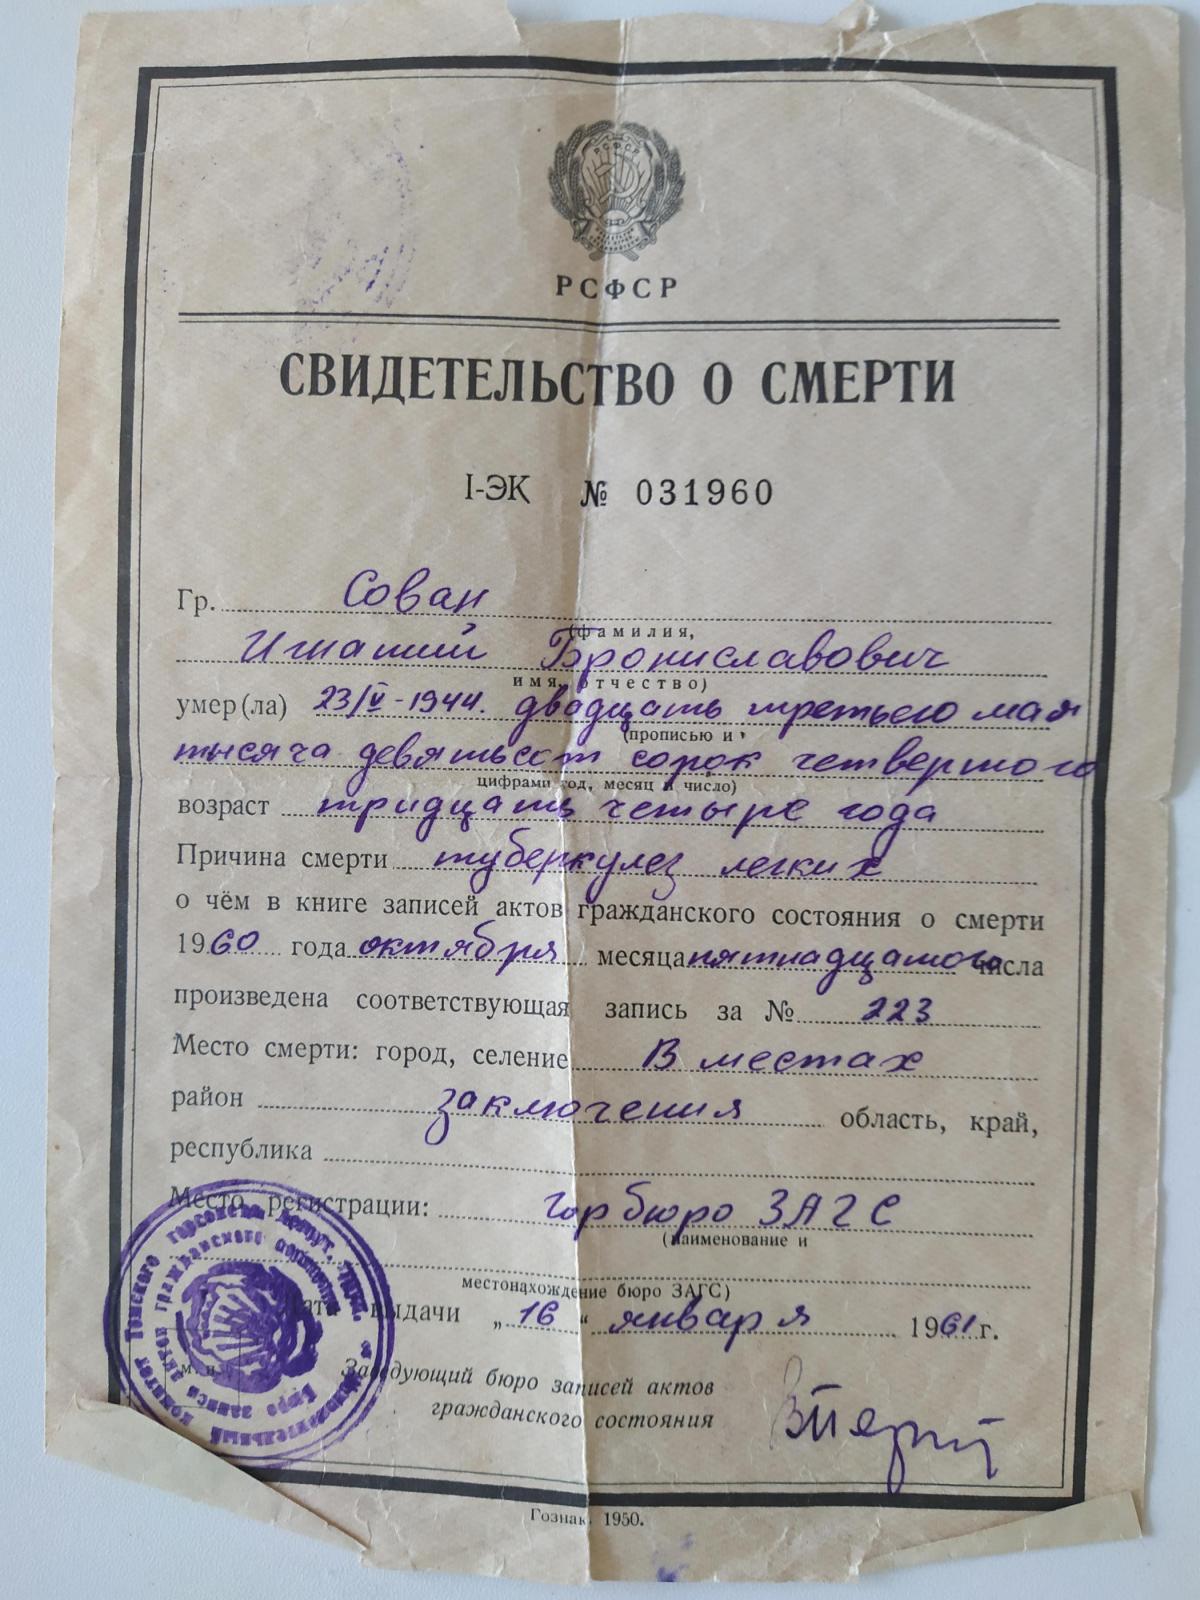 РСФСР
РСФСР
СВИДЕТЕЛЬСТВО О СМЕРТИ
I-ЭК № 031960
Гр. Сован
(фамилия,
Игнатий Брониславович
имя, отчество)
умер(ла) 23/V-1944. двадцать третьего мая
(прописью и
тысяча девятьсот сорок четвертого
цифрами год, месяц и число)
возраст тридцать четыре года
Причина смерти туберкулез легких
о чём в книге записей актов гражданского состояния о смерти
1960 года октября месяца пятнадцатого числа
произведена соответствующая запись за № 223
Место смерти: город, селение В местах
район заключения область, край,
республика
Место регистрации: Горбюро ЗАГС
(наименование и
местонахождение бюро ЗАГС)
Дата выдачи „16“ января 1961 г.
М. П.
Заведующий бюро записей актов
гражданского состояния
Исполнительный комитет Томского горсовета депут. труд.
Бюро записи актов гражданского состояния
Гознак. 1950.